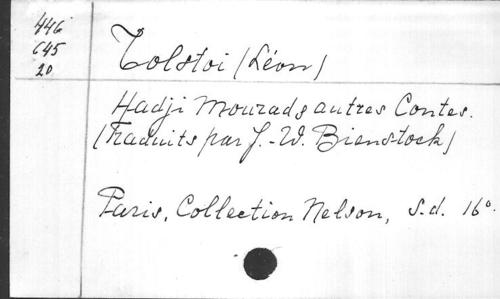 446
C45
20
Tolstoi (Léon)
Hadji Mourad & autres Contes.
(Traduits par J.-W. Bienstock)
Paris, Collection Nelson, s.d. 16°.